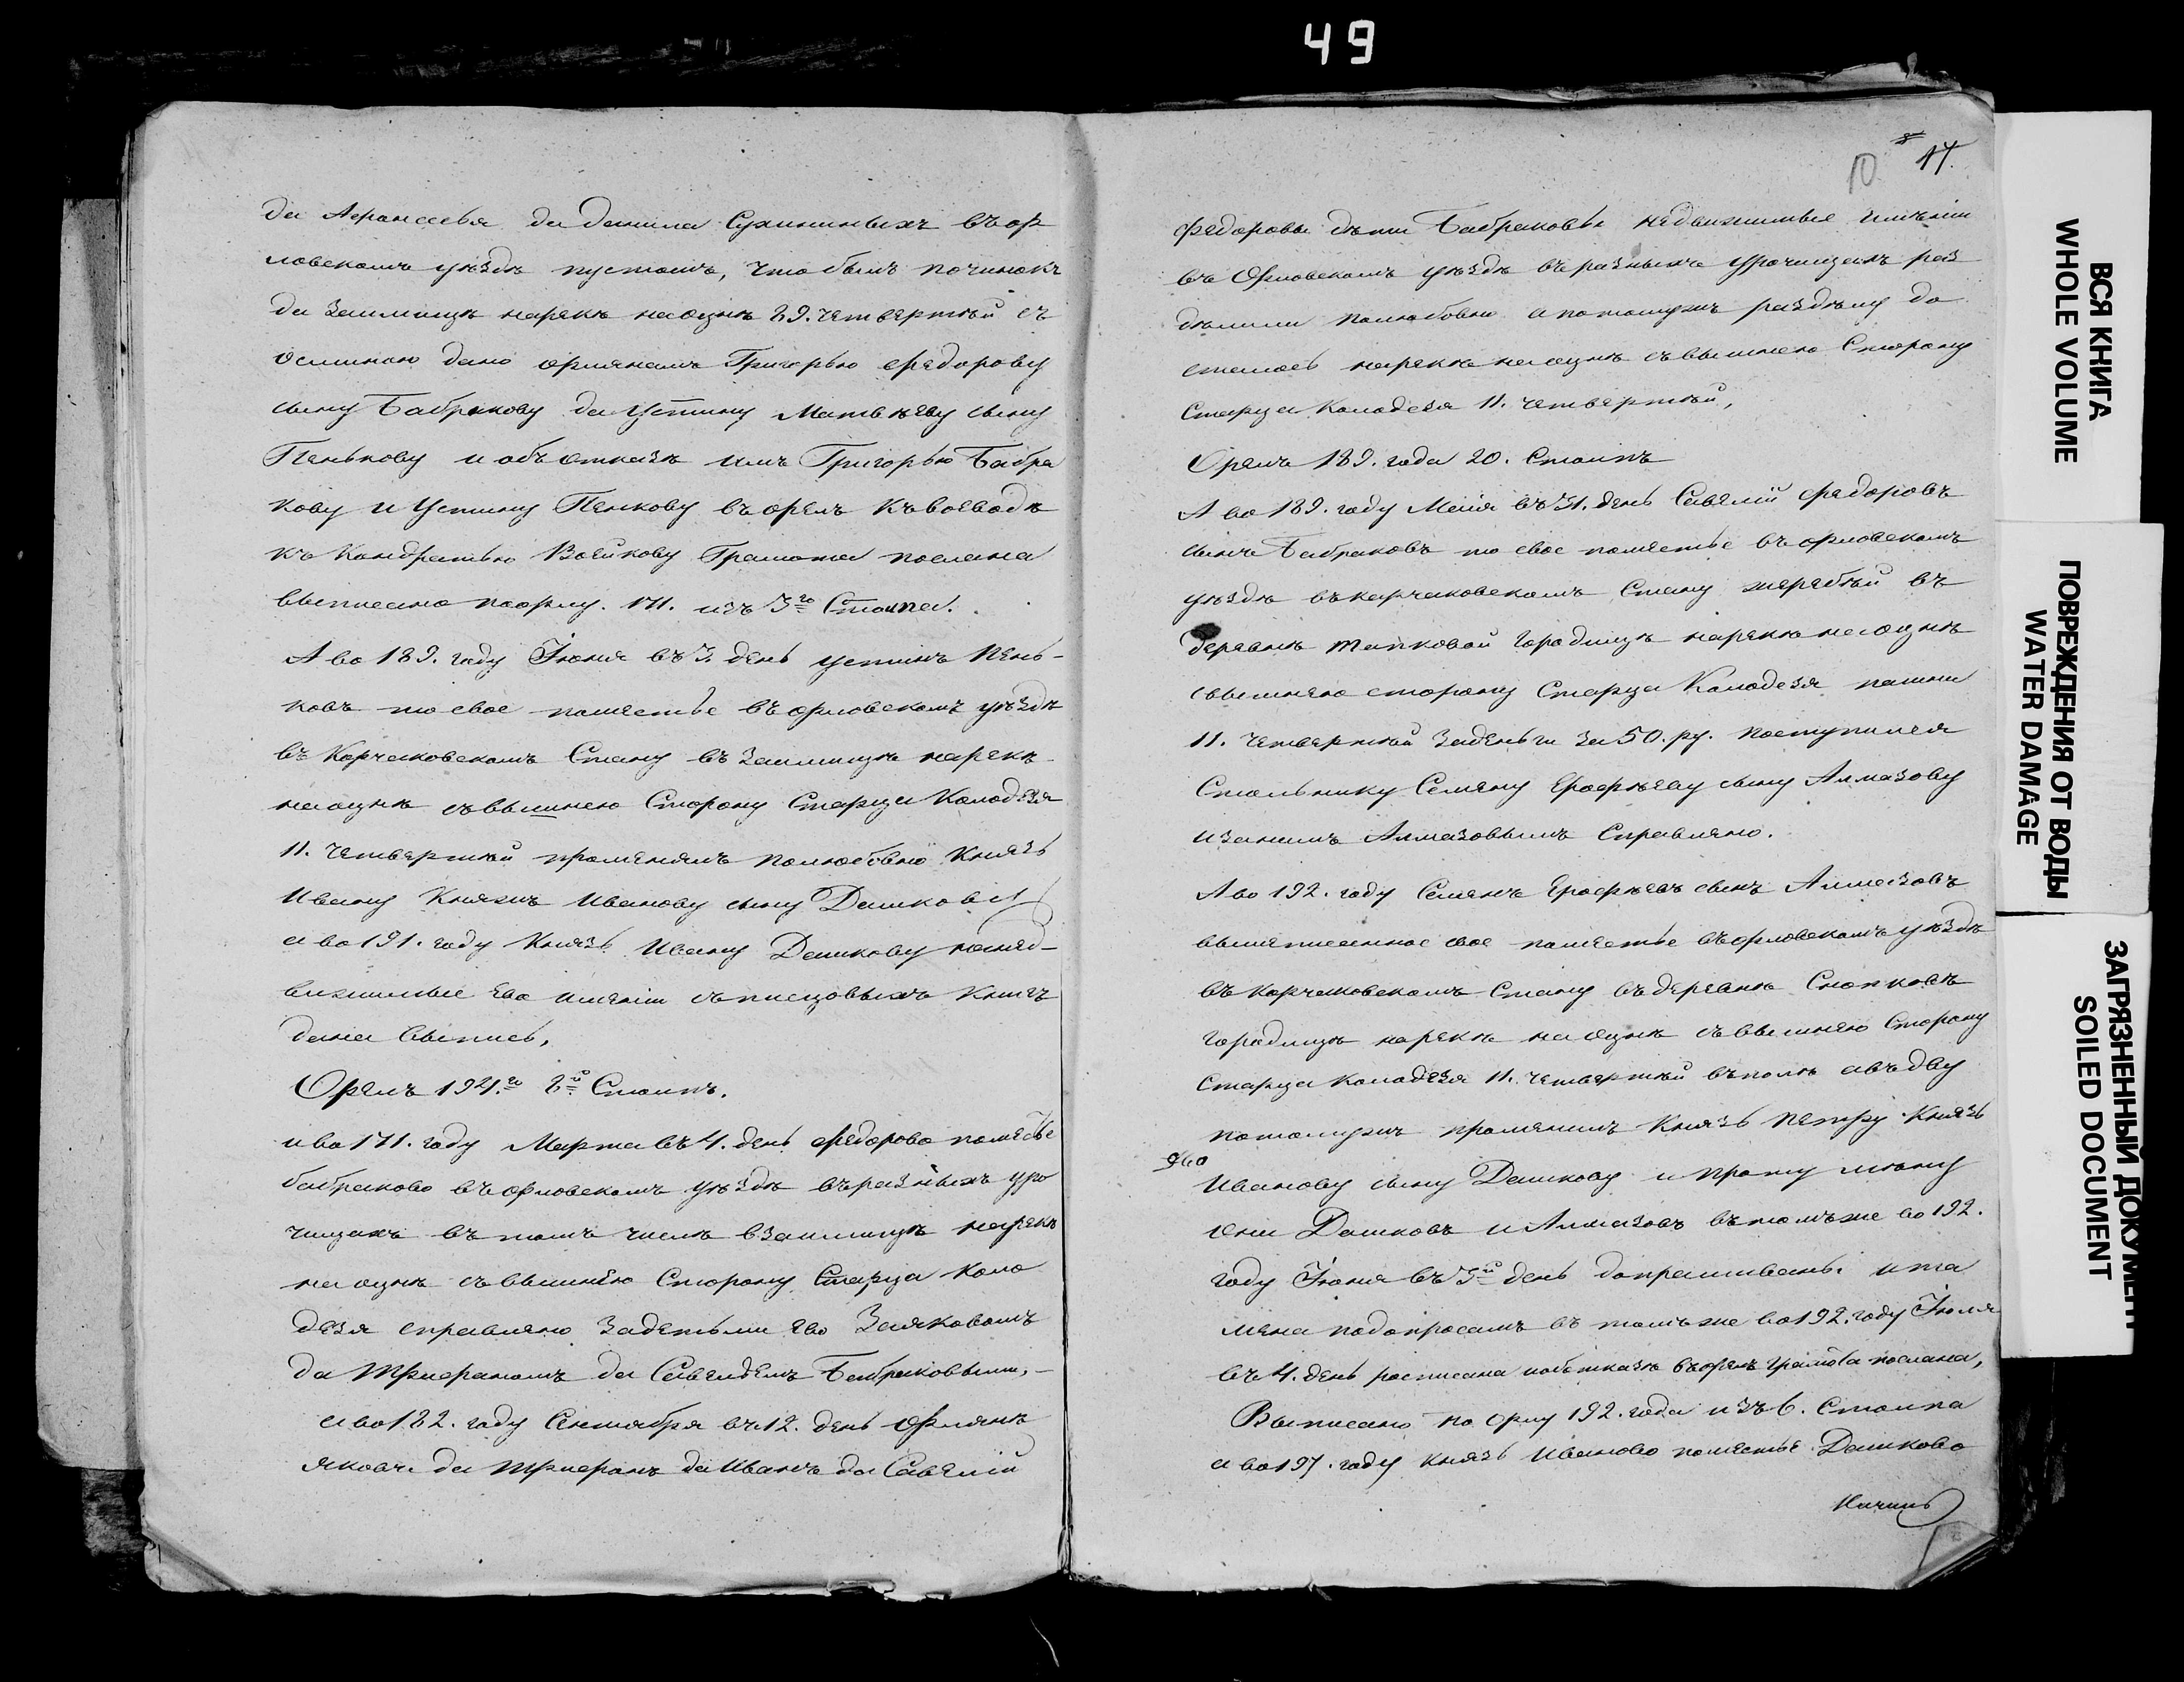 49
10 17.
да Афанасья да данила Сухининыхъ въ ор
ловскомъ уѣздѣ пустошь, что былъ починокъ
да Заимищѣ нарекѣ на оцнѣ 29. четвертей съ
осминою дано орлянамъ Григорью Федорову
сыну Бабракову да Устину Матвѣеву сыну
Пенькову и объ отказѣ имъ Григорью Бабра
кову и Устину Пенкову въ орелъ къ воеводѣ
къ Кондратью Воейкову Грамота послана
выписано по орлу. 171. изъ 3го Столпа.
А во 189. году Іюня въ 3. день устинъ Пень-
ковъ то свое поместье въ орловскомъ уѣздѣ
въ Корчаковскомъ Стану въ Заимищѣ нарекѣ
на оцнѣ съ вышнею Сторону Старца Колодезя
11. четвертей променялъ полюбовно Князь
Ивану Княжъ Иванову сыну Дашкову
а во 191. году Князь Ивану Дашкову нанед-
вижимые Ево имении съ писцовыхъ Книгъ
дана выпись,
Орелъ 191.го 8й Столпъ.
и во 171. году Марта въ 4. день федорово поместье
бабраково въ орловскомъ уѣздѣ въ разныхъ уро
чищахъ въ томъ числѣ взаимищѣ нарекѣ
на оцнѣ съ вышнею Сторону Старца Коло
дезя справлено Задетьми Ево Заяковомъ
да Трифаномъ да Савельемъ Бабраковыми,-
а во 182. году Сентября въ 12. день орляне
яковъ да Трифанъ да Иванъ да Савелій
федоровы дѣти Бабраковы недвижимые имѣніи
въ Орловскомъ уѣздѣ въ разныхъ урочищахъ раз
дѣлили полюбовно а потомужъ раздѣлу до
сталось нарекѣ на оцнѣ съ вышнею Сторону
Старца Колодезя 11. четвертей,
Орелъ 189. года 20. Столпъ
А во 189. году Маія въ 31. день Савелій федоровъ
сынъ Бабраковъ то свое поместье въ орловскомъ
уѣздѣ въ карчаковскомъ Стану жеребей въ
деревнѣ Тапковой городищѣ нарекѣ на оцнѣ
свышнею сторону Старца Колодезя пашни
11. четвертей Заденьги за 50. ру. поступился
Стольнику Семену Ерофѣеву сыну Алмазову
и занимъ Алмазовымъ Справлено.
А во 192. году Семенъ Ерофѣевъ сынъ Алмазовъ
вышеписанное свое поместье въ орловскомъ уѣздѣ
въ корчаковскомъ стану въ деревнѣ Снопковѣ
городищѣ нарекѣ на оцнѣ съ вышнею Сторону
Старца колодезя 11. четвертей въ полѣ авъ дву
потомужъ променилъ Князь Петру Князь
Иванову сыну Дашкову и прому мѣну
они Дашковъ и Алмазовъ въ томъже во 192.
году Іюня въ 3й день допрашиваны и та
мена подопросамъ въ томъже во 192. году Іюля
въ 4. день росписана иобътказѣ въ орелъ грамота послана,
Выписано по орлу 192. года изъ 6. Столпа
а во 197. году князь Иваново поместье Дашково
ВСЯ КНИГА
WHOLE VOLUME
ПОВРЕЖДЕНИЯ ОТ ВОДЫ
WATER DAMAGE
ЗАГРЯЗНЕННЫЙ ДОКУМЕНТ
SOILED DOCUMENT